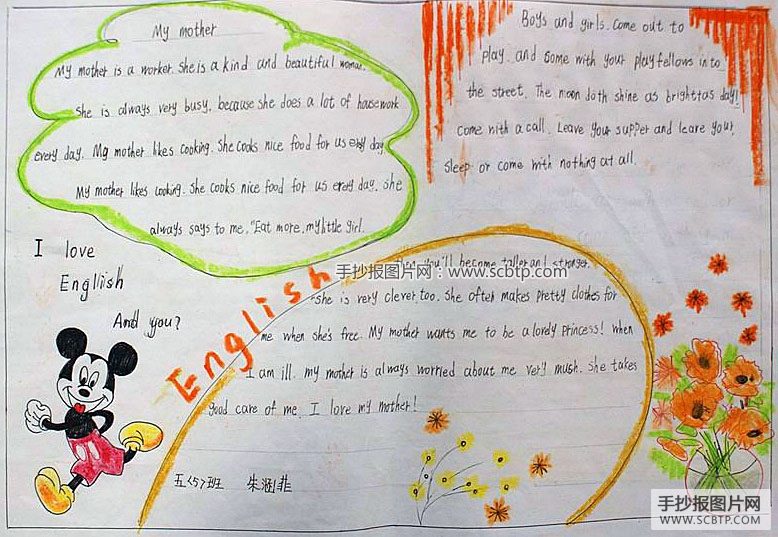 My mother
My mother is a worker. She is a kind and beautiful woman.
She is always very busy, because she does a lot of housework
every day. My mother likes cooking. She cooks nice food for us every day
My mother likes cooking. She cooks nice food for us every day. She
always says to me, "Eat more, my little girl.
Boys and girls. Come out to
play. and Some with your playfellows into
the street. The moon doth shine as bright as day!
come with a call. Leave your supper and leave your
sleep or come with nothing at all.
I love
English
And you?
English
手抄报图片网：www.scbtp.com
you'll become taller and stronger.
"She is very clever, too. She often makes pretty clothes for
me when she's free. My mother wants me to be a lovely princess! when
I am ill. my mother is always worried about me very mush. She takes
good care of me. I love my mother!
五<5>班 朱涵菲
手抄报图片网
WWW.SCBTP.COM